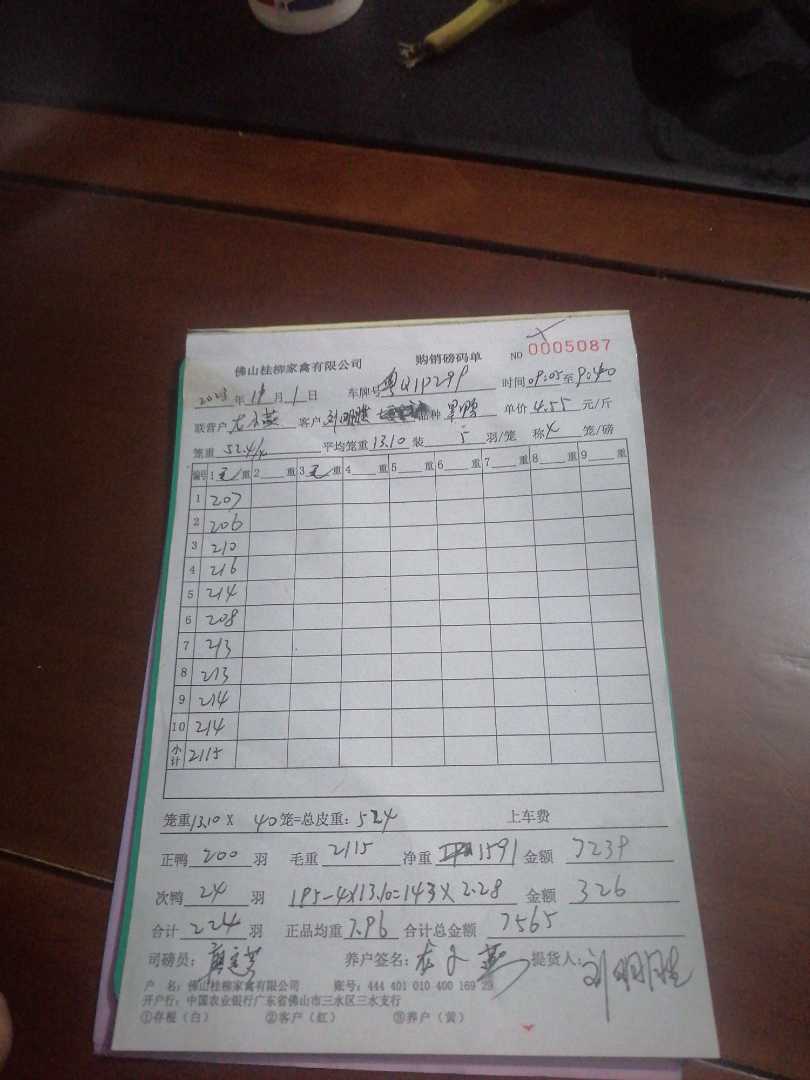 佛山桂柳家禽有限公司 购销磅码单 NO 0005087
2023 年 月 1 日 车牌号 粤Q1P299 时间 09:05 至 9:40
联营户 客户 刘明胜 品种 单价 4.55 元/斤
笼重 52.4/4 平均笼重 13.10 装 5 羽/笼 称 4 笼/磅
编号 1 毛 重 2 重 3 毛 重 4 重 5 重 6 重 7 重 8 重 9 重
1 207
2 206
3 210
4 216
5 214
6 208
7 213
8 213
9 214
10 214
小计 2115
笼重 13.10 X 40 笼=总皮重: 524 上车费
正鸭 200 羽 毛重 2115 净重 1591 金额 7239
次鸭 24 羽 195-4X13.10=143X2.28 金额 326
合计 224 羽 正品均重 7.96 合计总金额 7565
司磅员: 养户签名: 提货人: 刘明胜
户 名: 佛山桂柳家禽有限公司 账号: 444 401 010 400 169 29
开户行: 中国农业银行广东省佛山市三水区三水支行
①存根(白) ②客户(红) ③养户(黄)